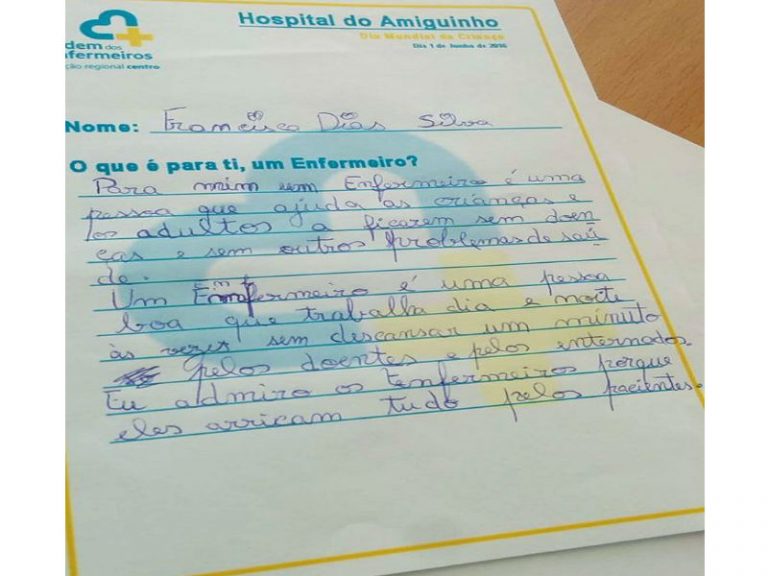 Hospital do Amiguinho
Dia Mundial da Criança
Dia 1 de Junho de 2016
dem dos
nfermeiros
ção regional centro
Nome: Francisco Dias Silva
O que é para ti, um Enfermeiro?
Para mim um Enfermeiro é uma
pessoa que ajuda as crianças e
os adultos a ficarem sem doen
ças e sem outros problemas de saú
de.
Um Enfermeiro é uma pessoa
boa que trabalha dia e noite
às vezes sem descansar um minuto
pelos doentes e pelos enternados.
Eu admiro os Enfermeiros porque
eles arricam tudo pelos pacientes.